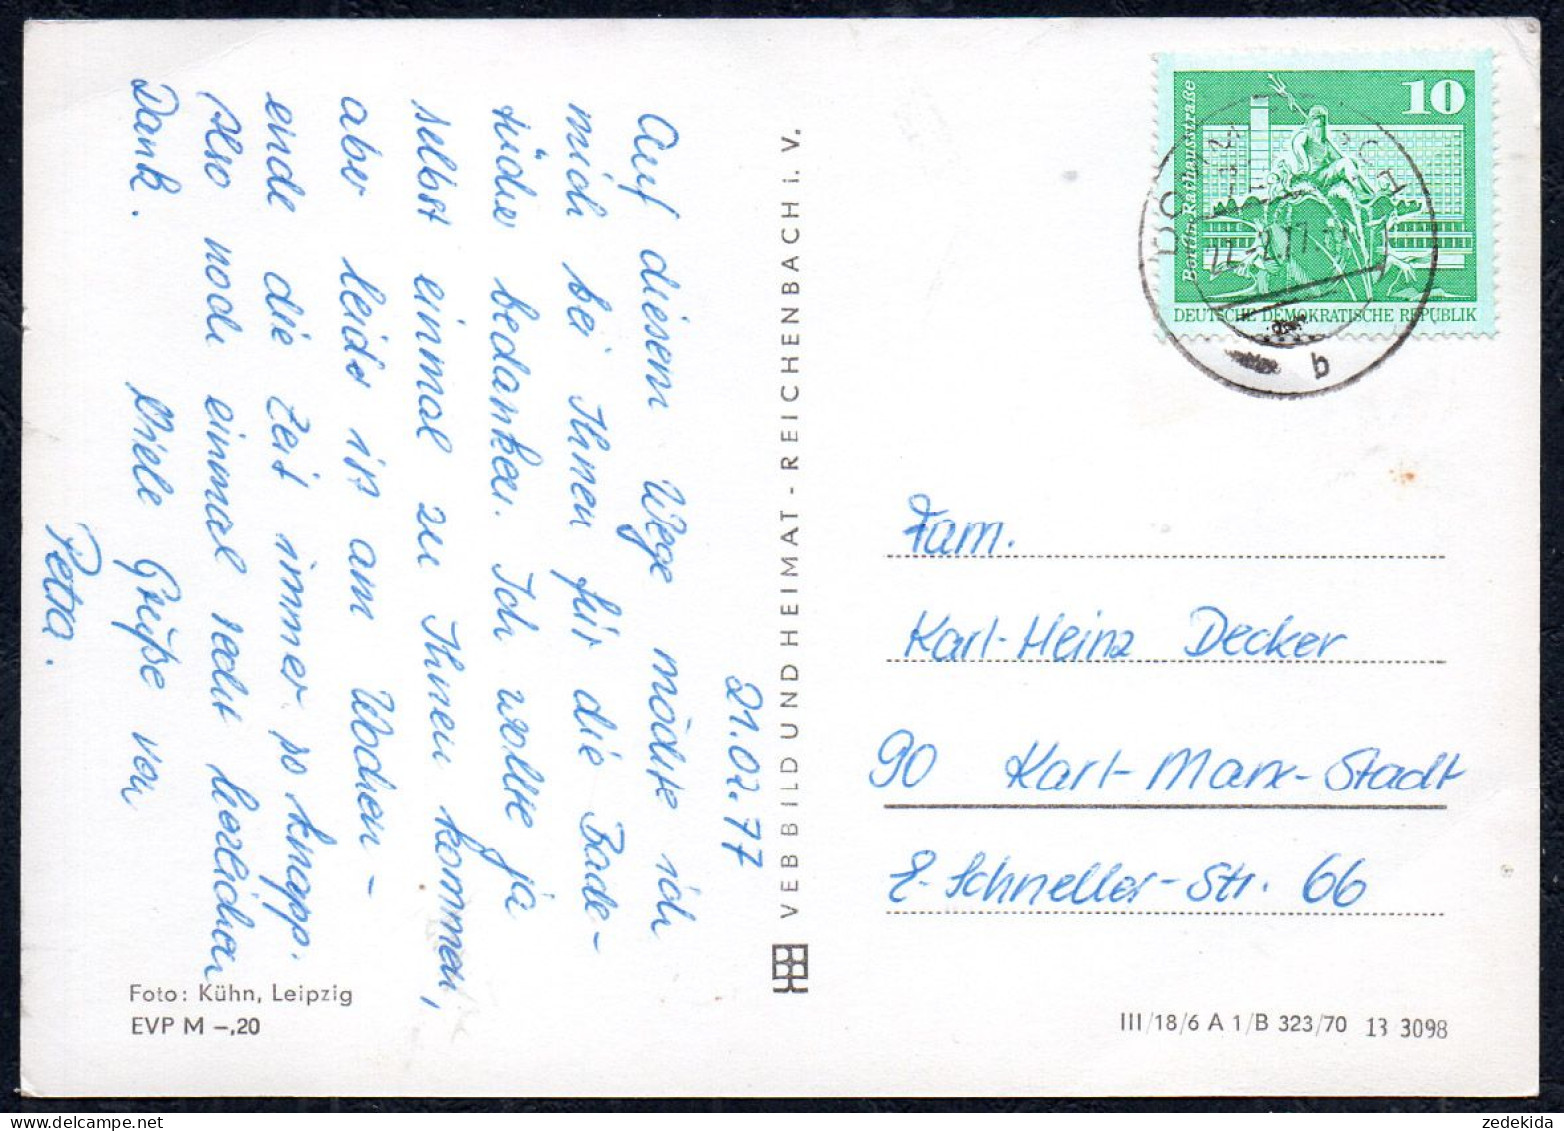 21.02.77
Auf diesem Wege möchte ich
mich bei Ihnen für die Bade-
tücher bedanken. Ich wollte ja
selbst einmal zu Ihnen kommen,
aber leider ist am Wochen-
ende die Zeit immer so knapp.
Also noch einmal recht herzlichen
Dank. Viele Grüße von
Petra.
VEB BILD UND HEIMAT - REICHENBACH i. V.
Foto: Kühn, Leipzig
EVP M –,20
10
Berlin · Rathausstraße
DEUTSCHE DEMOKRATISCHE REPUBLIK
22.-2.77
b
Fam.
Karl-Heinz Decker
90 Karl-Marx-Stadt
E-Schneller-Str. 66
III/18/6 A 1/B 323/70 13 3098
zedekida